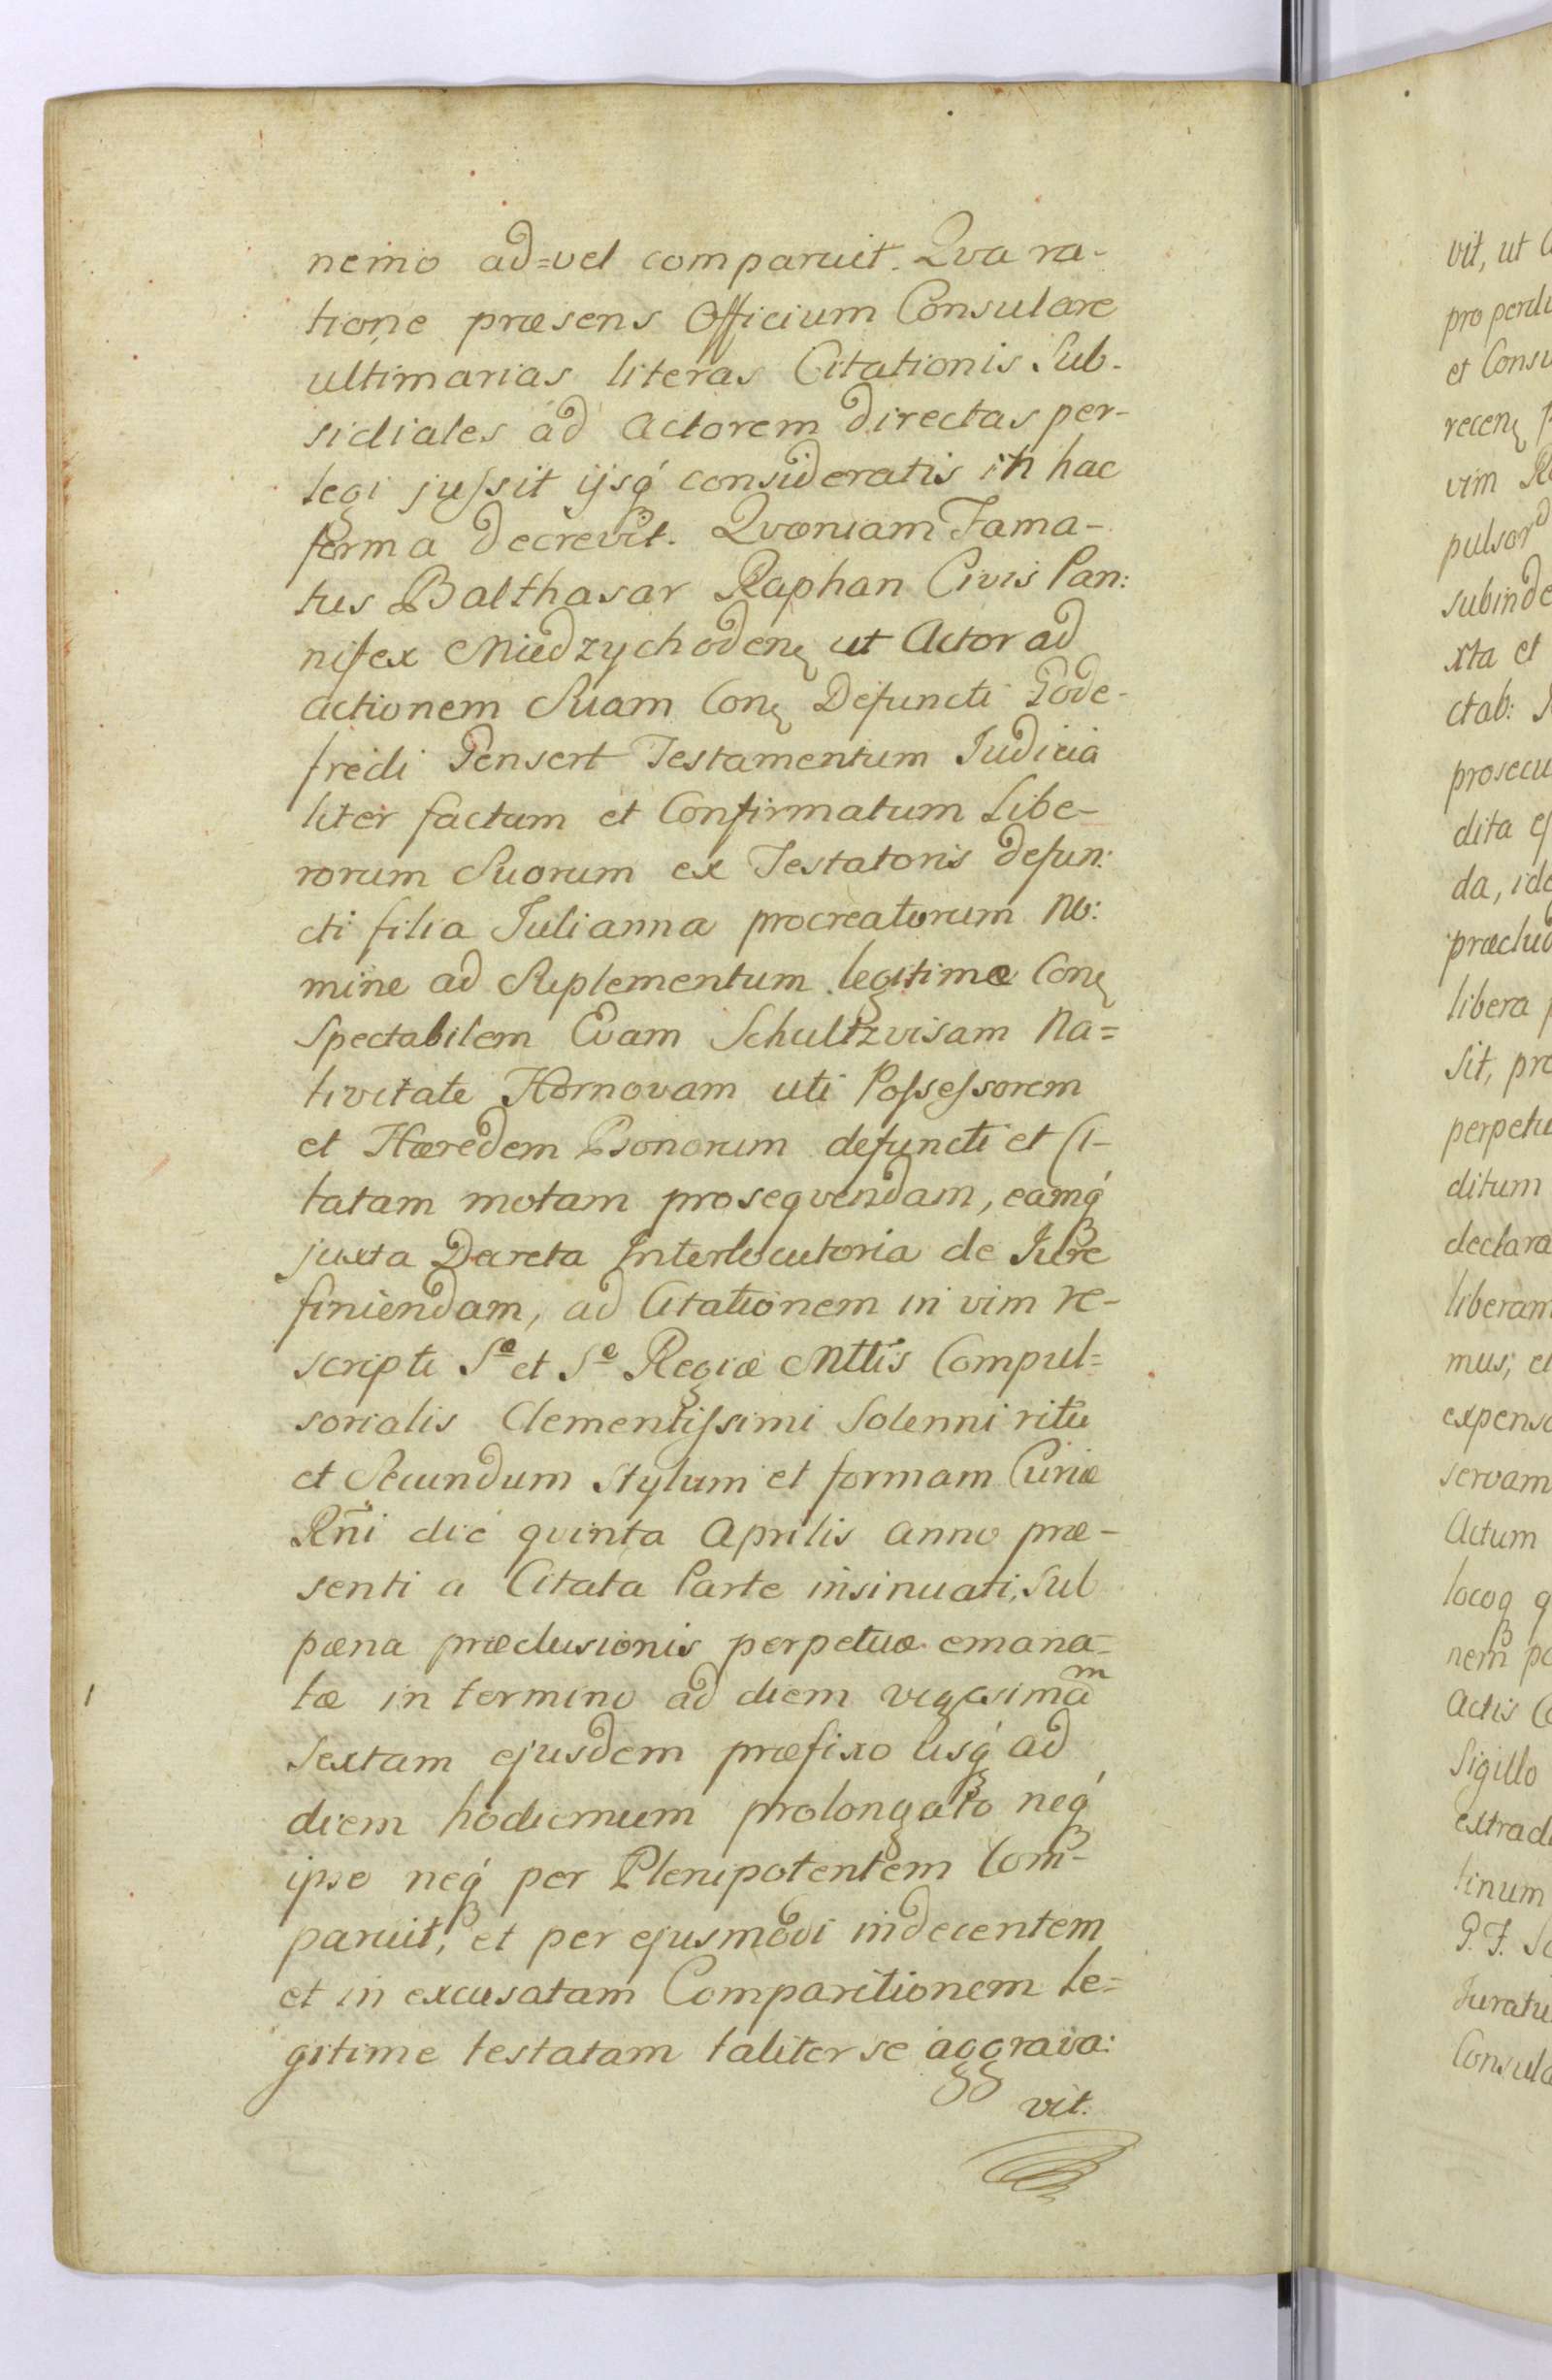 nemo ad=vel comparuit. Qva ra-
tione præsens Officium Consulare
ultimarias literas Citationis Sub-
sidiales ad Actorem directas per-
legi jussit ijsq́ consideratis in hac
forma decrevit. Qvoniam Fama-
tus Balthasar Raphan Civis Pan:
nifex Miedzychoden ut Actor ad
actionem Suam Con Defuncti Gode-
fredi Pensert Testamentum Judicia
liter factum et Confirmatum Libe-
rorum Suorum ex Testatoris defun:
cti filia Julianna procreatorum No:
mine ad Suplementum legitimæ Con
Spectabilem Evam Schultzvisam Na=
tivitate Hornovam uti Possessorem
et Hæredem Bonorum defuncti et Ci-
tatam motam proseqvendam, eamq́
juxta Decreta Interlocutoria de Jure
finiendam, ad Citationem in vim re-
scripti Sæ et Sæ Regiæ Mttis Compul=
sorialis Clementissimi Solenni ritu
et Secundum Stylum et formam Curiæ
Rñi die qvinta Aprilis anno præ-
senti a Citata Parte insinuati, Sub
pæna præclusionis perpetuæ emana=
tæ in termino ad diem vigesimam
Sextam ejusdem præfixo usq́ ad
diem hodiernum prolongato neq́
ipse neq́ per Plenipotentem Com-
paruit, et per ejusmodi indecentem
et in excusatam Comparitionem le=
gitime testatam taliter se aggrava:
vit.
vit, ut
pro
et
recen
vim
subinde
xta et
ctab:
prosecu
dita
da,
præclud
libera
Sit, pro
perpetu
ditum
declara
liberam
mus, et
expens
servam
Actum
locoq
nem
Actis
Sigillo
extrad
tinum
P. F.
Juratu
Consula